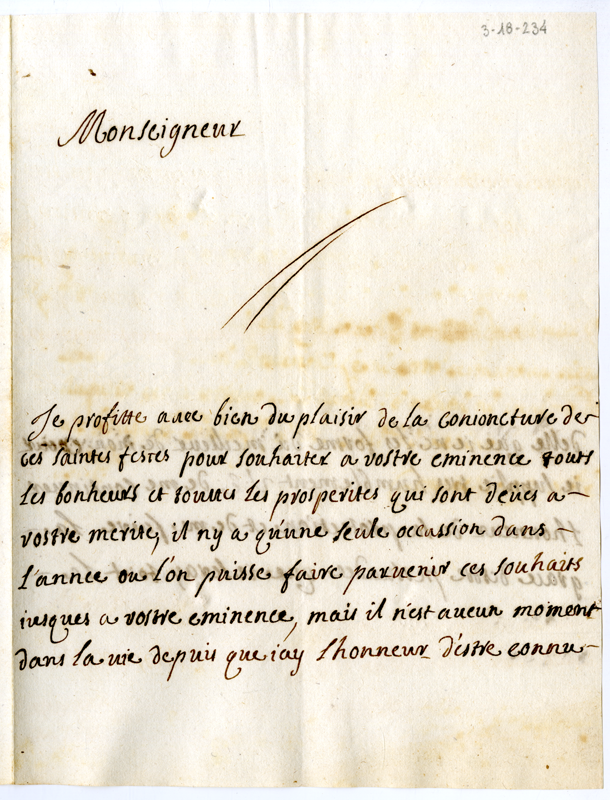 3-18-234
Monseigneur
Je profitte avec bien du plaisir de la conioncture de
ces saintes festes pour souhaiter a vostre eminence touts
les bonheurs et toutes les prosperites qui sont deües a
vostre merite, il ny a qu'une seule occassion dans
l'annee ou l'on puisse faire paruenir ces souhaits
iusques a vostre eminence, mais il n'est aucun moment
dans la vie depuis que i'ay l'honneur d'estre connu